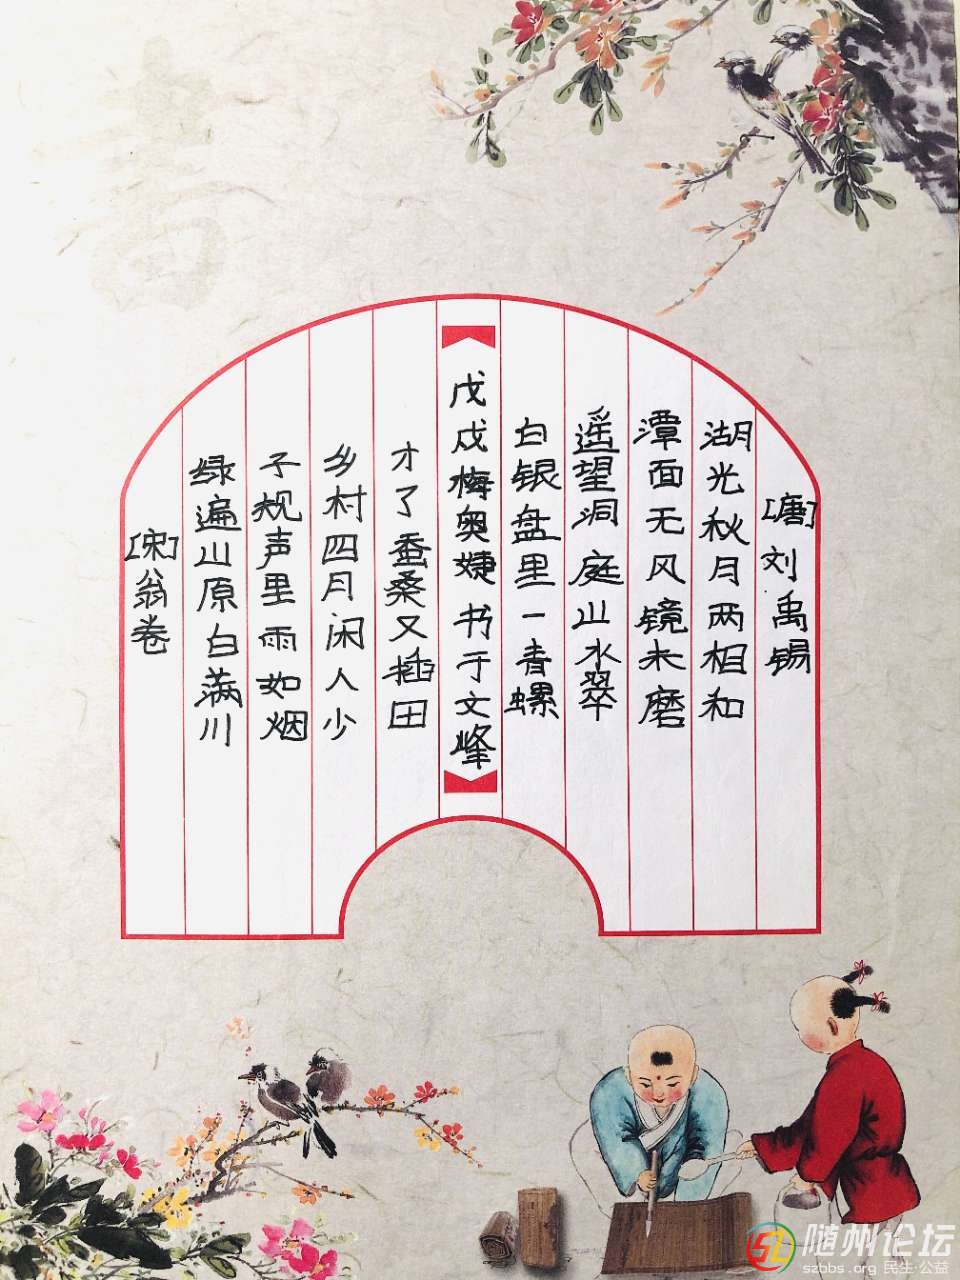 寿
[唐]刘禹锡
湖光秋月两相和
潭面无风镜未磨
遥望洞庭山水翠
白银盘里一青螺
戊戌梅奥婕书于文峰
[宋]翁卷
绿遍山原白满川
子规声里雨如烟
乡村四月闲人少
才了蚕桑又插田
随州论坛
szbbs.org 民生·公益